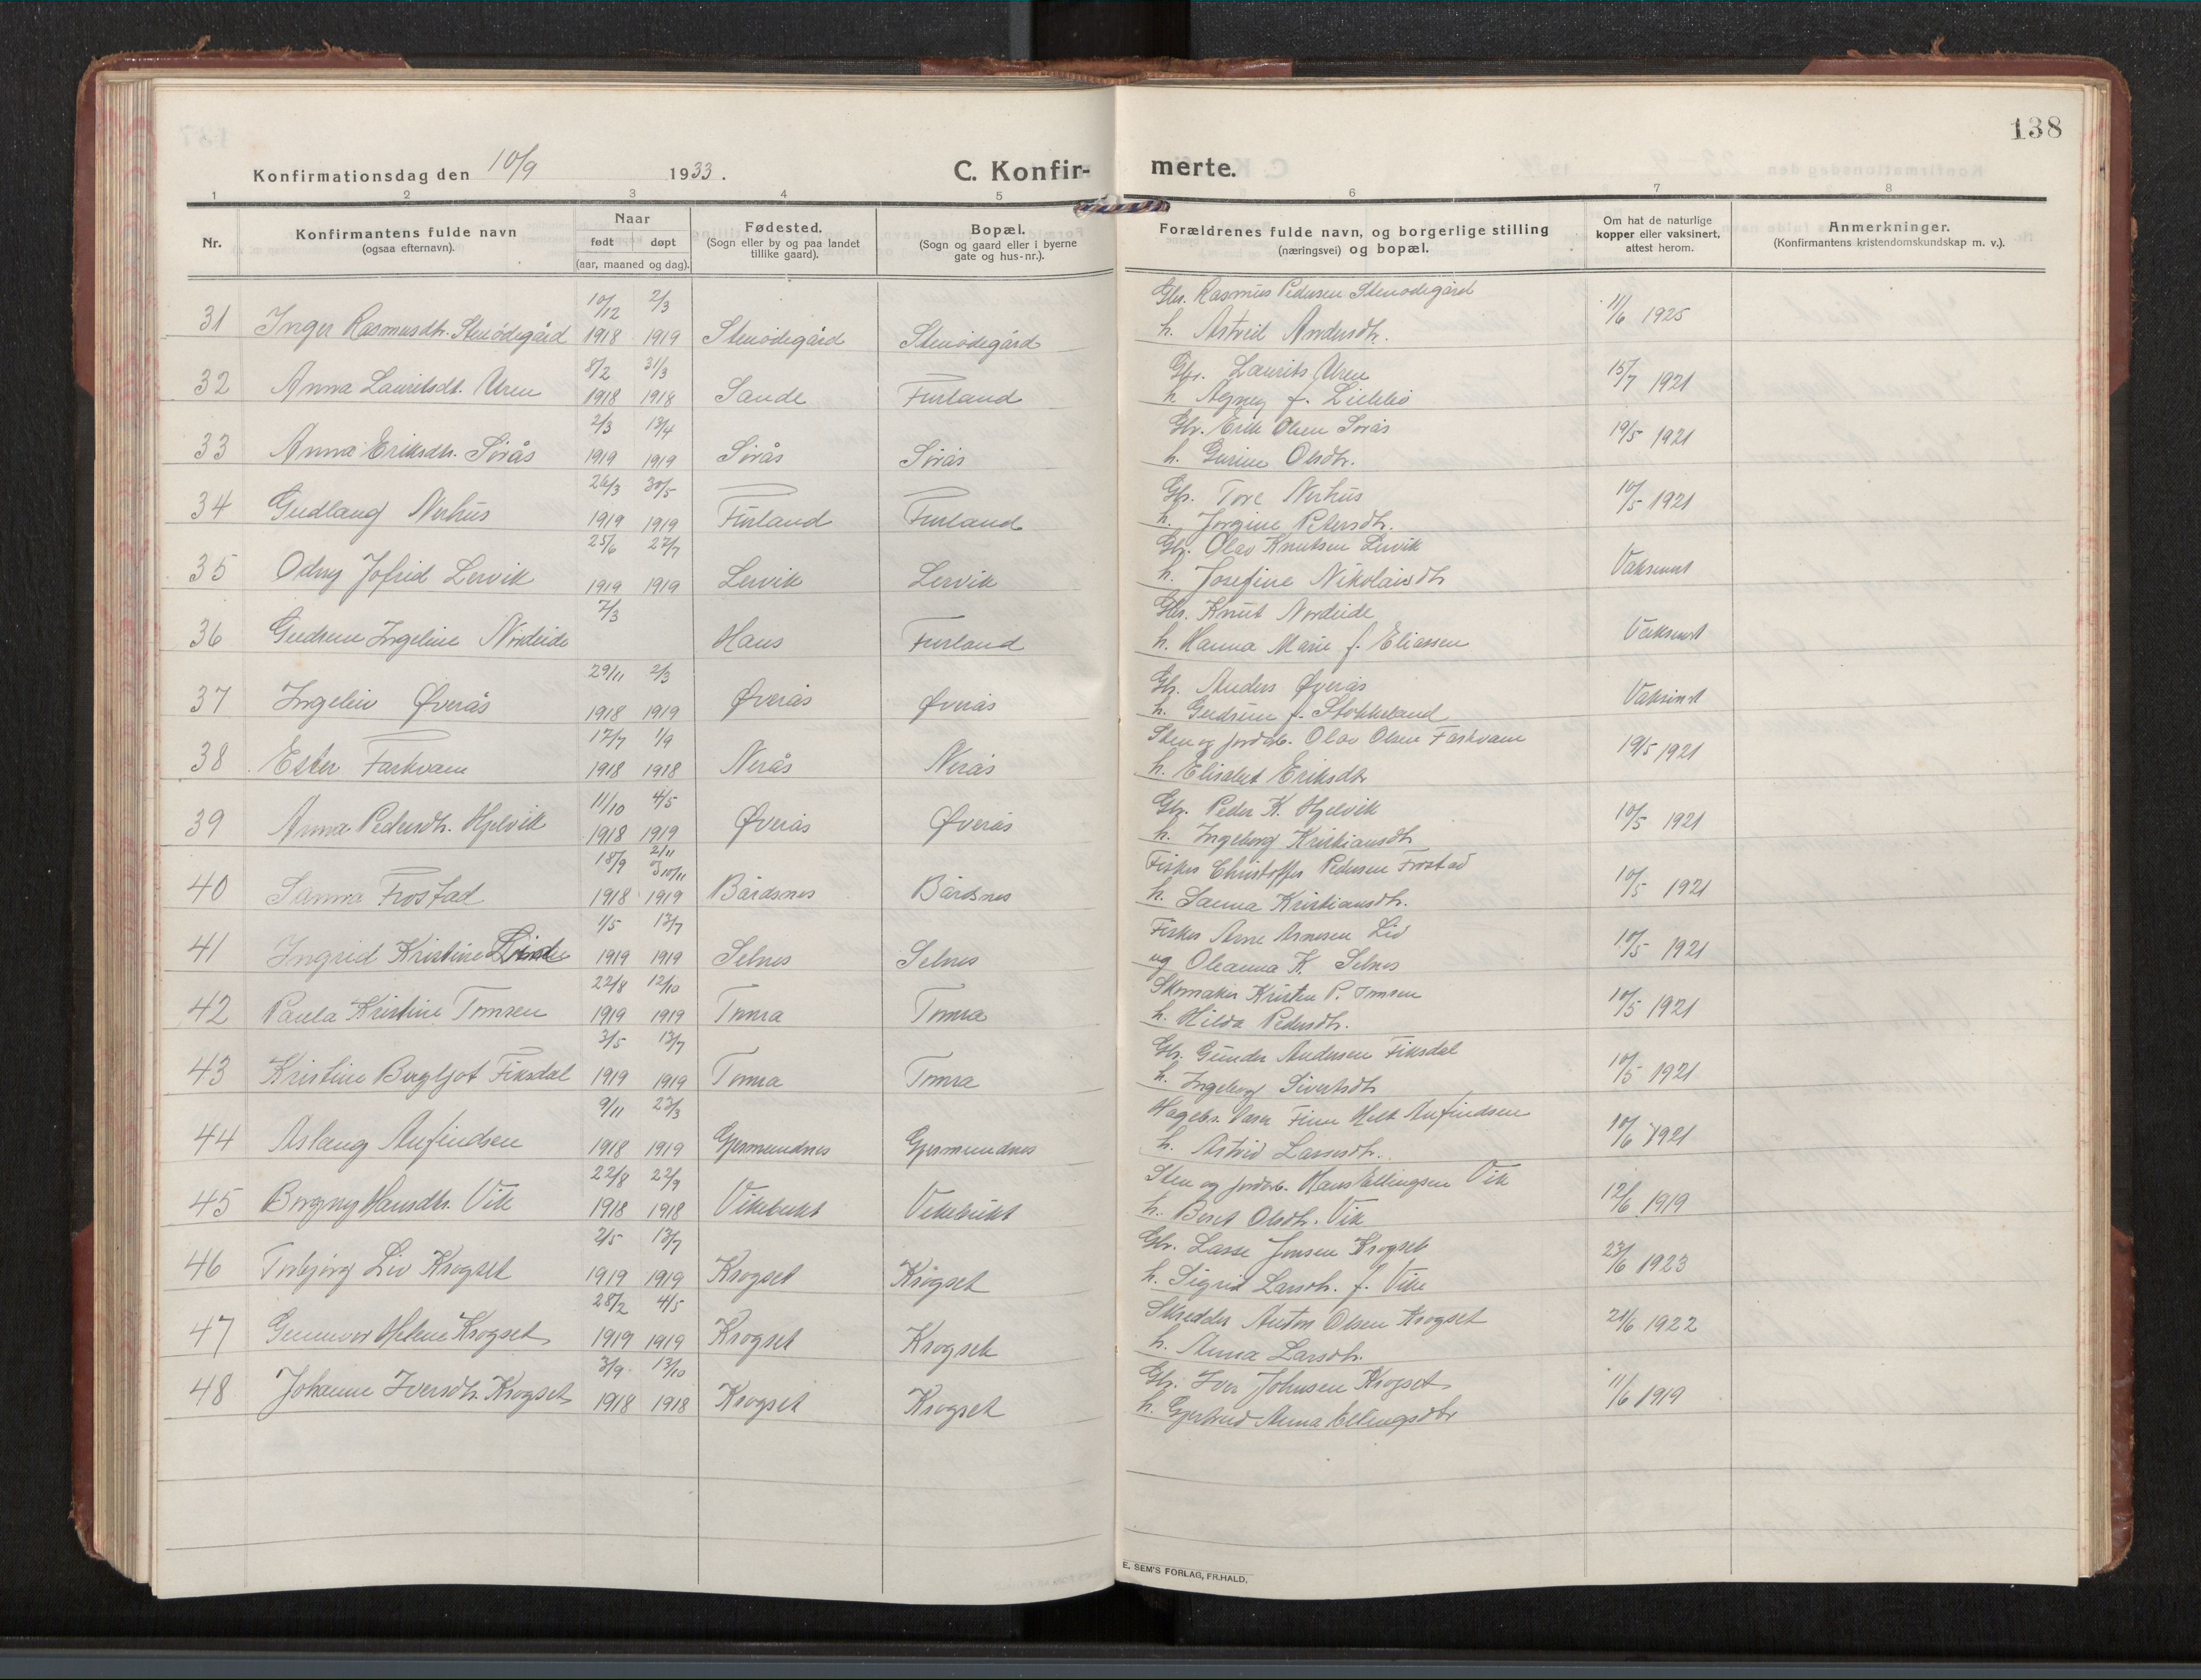 138
Konfirmationsdag den 10/9 1933. C. Konfir- merte.
1 2 3 4 5 6 7 8
Nr. Konfirmantens fulde navn (ogsaa efternavn). Naar født døpt (aar, maaned og dag). Fødested. (Sogn eller by og paa landet tillike gaard). Bopæl. (Sogn og gaard eller i byerne gate og hus-nr.). Forældrenes fulde navn, og borgerlige stilling (næringsvei) og bopæl. Om hat de naturlige kopper eller vaksinert, attest herom. Anmerkninger. (Konfirmantens kristendomskundskap m. v.).
10/12 2/3 Gbr. Rasmus Pedersen Stenødegård
31 Inger Rasmusdtr. Stenødegård 1918 1919 Stenødegård Stenødegård h. Astrid Andersdtr. 11/6 1925
8/2 31/3 Gbr. Laurits Uren
32 Anna Lauritsdt. Uren 1918 1918 Sande Furland h. Agney f. 15/7 1921
2/3 13/4 Gbr. Erik Olsen Sørås
33 Anna Eriksdtr. Sørås 1919 1919 Sørås Sørås h. Gurine Olsdtr. 19/5 1921
26/3 30/5 Gbr. Tore Nerhus
34 Gudlaug Nerhus 1919 1919 Furland Furland h. Jørgine Petersdtr. 10/5 1921
25/6 27/7 Gbr. Olav Knutsen Lervik
35 Odny Jofrid Lervik 1919 1919 Lervik Lervik h. Josefine Nikolaisdtr Vaksinert
7/3 Gbr. Knut Nordeide
36 Gudrun Ingeline Nordeide Haus Furland h. Hanna Marie f. Eliassen Vaksinert
29/11 2/3 Gbr. Anders Øverås
37 Ingeliv Øverås 1918 1919 Øverås Øverås h. Gudrun f. Stokkeland Vaksinert
17/7 1/9 Sten og jordarb. Olav Olsen Farkvam
38 Ester Farkvam 1918 1918 Nerås Nerås h. Elisabet Eriksdtr 19/5 1921
11/10 4/5 Gbr. Peder K. Hjelvik
39 Anna Pedersdtr. Hjelvik 1918 1919 Øverås Øverås h. Ingeborg Kristiansdtr 10/5 1921
18/9 2/11 10/11 Fisker Christoffer Pedersen Frostad
40 Sanna Frostad 1918 1919 Bårdsnes Bårdsnes h. Sanna Kristiansdtr. 10/5 1921
1/5 13/7 Fisker Arne Arnesen Lid
41 Ingrid Kristine 1919 1919 Selnes Selnes og Oleanna K. Selnes 10/5 1921
22/8 12/10 Skomaker Kristen P. Tomren
42 Paula Kristine Tomren 1919 1919 Tomra Tomra h. Hilda Pedersdtr. 10/5 1921
3/5 13/7 Gbr. Gunder Andersen Fiksdal
43 Kristine Bergljot Fiksdal 1919 1919 Tomra Tomra h. Ingeborg Sivertsdtr 10/5 1921
9/11 23/3 Finn Anfindsen
44 Aslaug Anfindsen 1918 1919 Gjermundnes Gjermundnes h. Astrid Lassesdtr. 10/6 1921
22/8 22/9 Sten og jordarb. Hans Ellingsen Vik
45 Borgny Hansdtr. Vik 1918 1918 Vikebukt Vikebukt h. Beret Olsdtr. Vik 12/6 1919
2/5 13/7 Gbr. Lasse Jonsen Krogset
46 Torbjørg Liv Krogset 1919 1919 Krogset Krogset h. Sigrid Larsdtr. f. Vike 23/6 1923
28/2 4/5 Skredder Anton Olsen Krogset
47 Gunnvor Helene Krogset 1919 1919 Krogset Krogset h. Anna Larsdtr. 21/6 1922
3/9 13/10 Gbr. Iver Johnsen Krogset
48 Johanne Iversdtr. Krogset 1918 1918 Krogset Krogset h. Gjertrud Anna Ellingsdtr 11/6 1919
E. SEM'S FORLAG, FR.HALD.